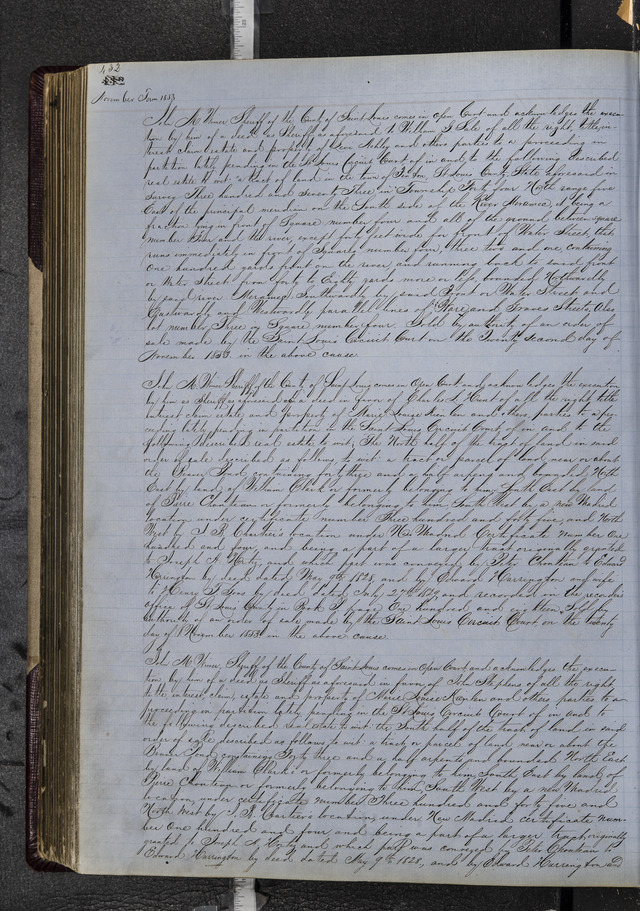 432
November Term 1853
John M Wimer Sheriff of the County of Saint Louis comes in open Court and acknowledges the execu-
tion by him of a deed as Sheriff as aforesaid to William S of all the right, title, in-
terest claim estate and property of and others parties to a proceeding in
partition lately pending in the St Louis Circuit Court of in and to the following described
real estate to wit, a tract of land in the town of St Louis County State aforesaid in
survey Three hundred and seventy Three in Township Forty four North range five
East of the principal meridian on the South side of the River Meramec, it being a
fraction lying in front of Square number four and all of the ground between square
number four and the river, except forty feet wide for front or Water Street, that
runs immediately in front of Squares number four, three two and one, containing
One hundred yards front on the river and running back to said front
or Water Street from forty to Eighty yards more or less, bounded Northwardly
by said river Meramec Southwardly by said Front or Water Street and
Eastwardly and Westwardly parallel lines of and Streets, Also
Lot number Three in Square number four. Sold by authority of an order of
sale made by the Saint Louis Circuit Court on the Twenty second day of
November 1853. in the above cause
John M Wimer Sheriff of the County of Saint Louis comes in Open Court and acknowledges the execution
by him as Sheriff as aforesaid of a deed in favor of Charles L Hunt of all the right title
interest claim estate and property of Marie Louise and others, parties to a pro-
ceeding lately pending in partition in the Saint Louis Circuit Court of in and to the
following described real estate to wit, The North half of the tract of land in said
order of sale described as follows, to wit a tract or parcel of land near or about
the Pond, containing forty three and a half arpens and bounded North
East by land of William Clark or formerly belonging to him, South East by land
of Pierre Chouteau or formerly belonging to him South West by a new Madrid
location under certificate number Three hundred and forty five, and North
West by J B Chartier's location under New Madrid Certificate number One
hundred and four and being a part of a larger tract originally granted
to Joseph A Hortiz, and which part was conveyed by Peter Chouteau to Edward
Harrington by deed dated May 9th 1828, and by Edward Harrington and wife
to Henry by deed dated July 27th and recorded in the recorder's
office of St Louis County in Book page One hundred and eighteen. Sold by
authority of an order of sale made by the Saint Louis Circuit Court on the twenty
day of November 1853 in the above cause.
John M Wimer, Sheriff of the County of Saint Louis comes in Open Court and acknowledges the execu-
tion, by him of a deed as Sheriff as aforesaid in favor of John Stephens of all the right
title interest, claim, estate and property of Marie Louise and others parties to a
proceeding in partition lately pending in the St Louis Circuit Court of in and to
the following described real estate to wit the South half of the tract of land in said
order of sale described as follows, to wit a tract or parcel of land near or about the
Pond, containing Forty three and a half arpents and bounded North East
by land of William Clark or formerly belonging to him, South East by land of
Pierre Chouteau or formerly belonging to him South West by a new Madrid
location, under certificate number Three hundred and forty five and
North West by J. B. Chartier's location, under New Madrid certificate num-
ber One hundred and four and being a part of a larger tract, originally
granted to Joseph A Hortiz and which part was conveyed by Peter Chouteau to
Edward Harrington by deed dated May 9th 1828, and by Edward Harrington and